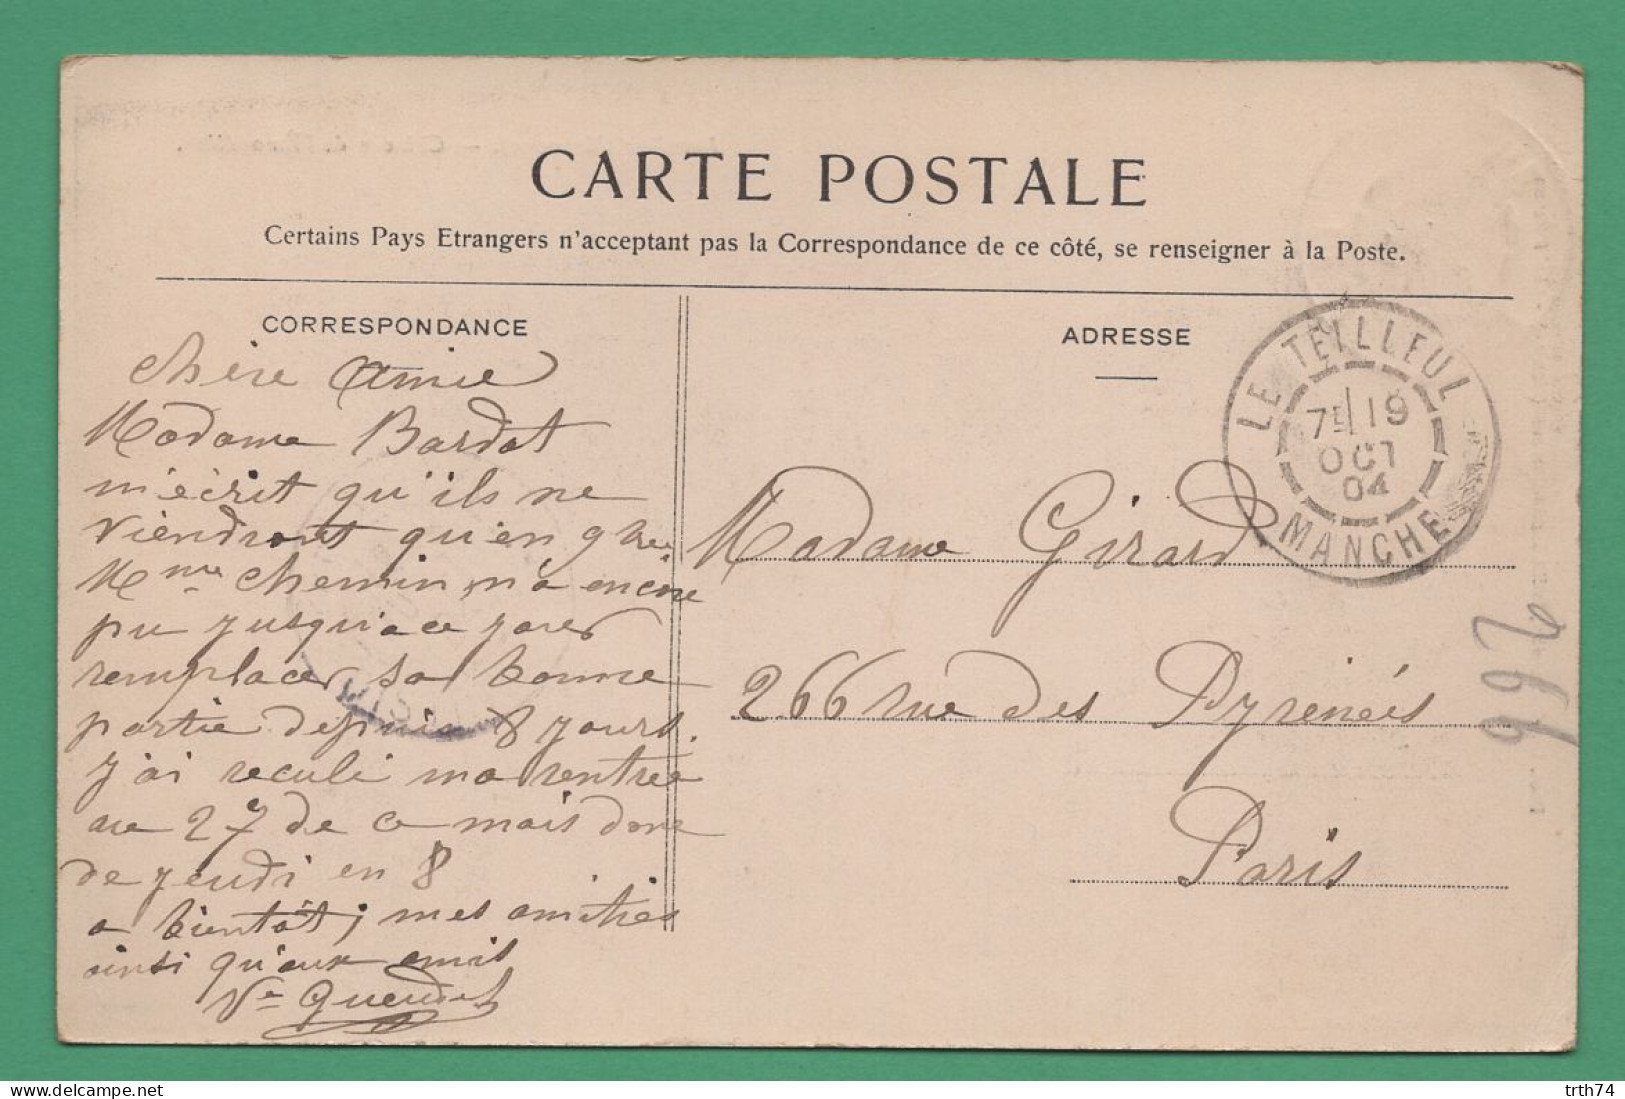 CARTE POSTALE
Certains Pays Etrangers n'acceptant pas la Correspondance de ce côté, se renseigner à la Poste.
CORRESPONDANCE
chère amie
Madame Bardot
m'écrit qu'ils ne
viendront qu'en 9bre
Mme Chemin n'a encore
pu jusqu'a ce jour
remplacer sa bonne
partie depuis 8 jours.
J'ai reculé ma rentrée
au 27 de ce mois donc
de jeudi en 8
a bientôt; mes amitiés
ainsi qu'aux amis
Ve
ADRESSE
LE TEILLEUL
7E 19
OCT
04
MANCHE
Madame Girard
266 rue des Pyrénées
Paris
266
trth74